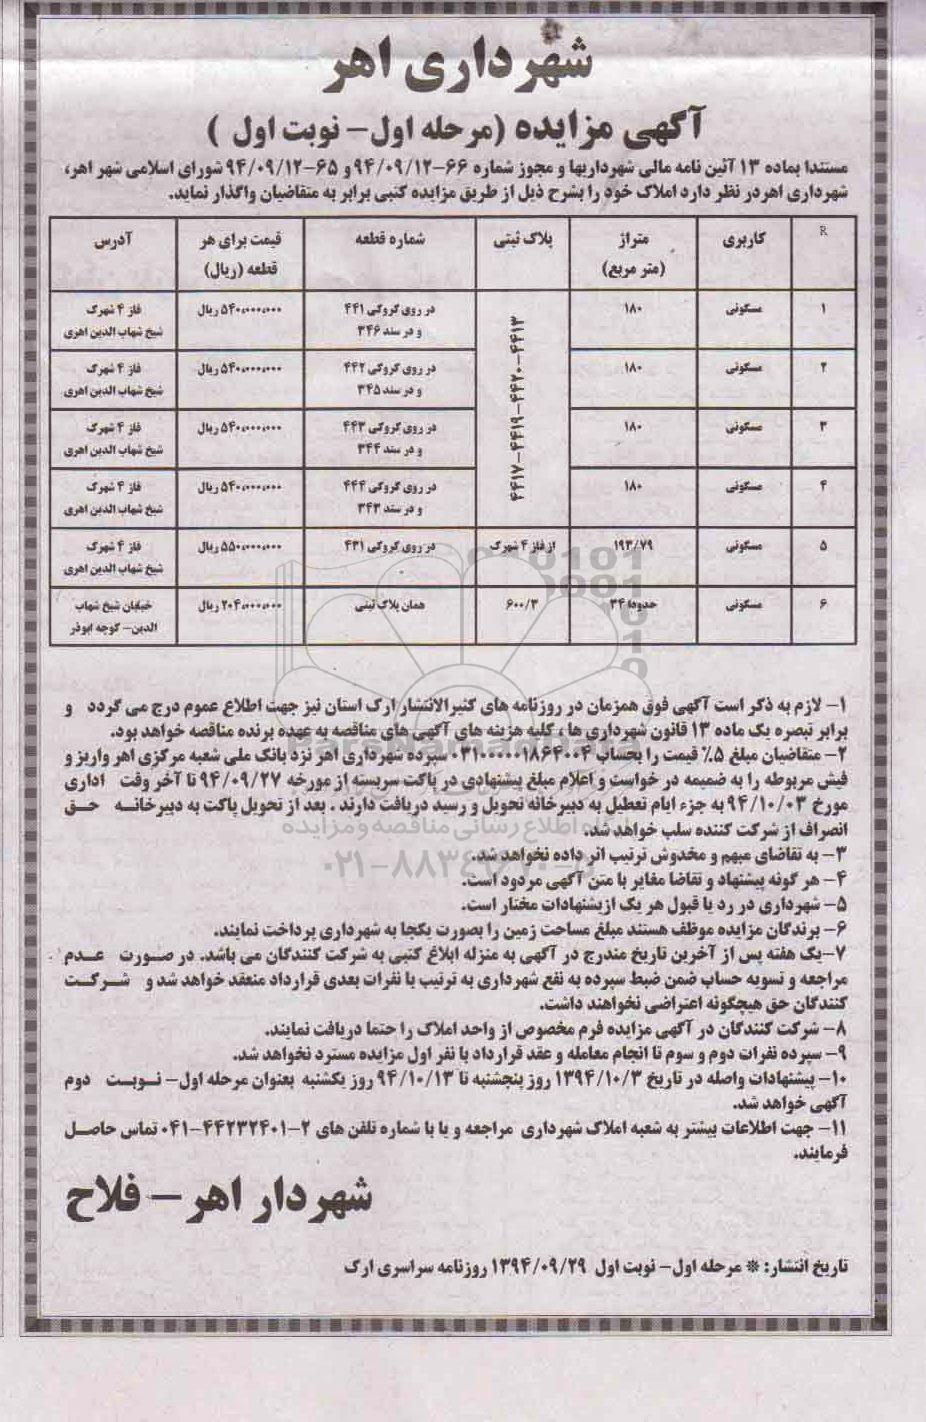 شهرداری اهر
آگهی مزایده (مرحله اول- نوبت اول )
مستندا بماده ۱۳ آئین نامه مالی شهرداریها و مجوز شماره ۶۶-۹۴/۰۹/۱۲ و ۶۵-۹۴/۰۹/۱۲ شورای اسلامی شهر اهر،
شهرداری اهر در نظر دارد املاک خود را بشرح ذیل از طریق مزایده کتبی برابر به متقاضیان واگذار نماید.
R کاربری متراژ (متر مربع) پلاک ثبتی شماره قطعه قیمت برای هر قطعه (ریال) آدرس
۱ مسکونی ۱۸۰ ۴۴۱۷-۴۴۱۹-۴۴۲۰-۴۴۱۳ در روی کروکی ۴۴۱ و در سند ۳۴۶ ۵۴۰،۰۰۰،۰۰۰ ریال فاز ۴ شهرک شیخ شهاب الدین اهری
۲ مسکونی ۱۸۰ در روی کروکی ۴۴۲ و در سند ۳۴۵ ۵۴۰،۰۰۰،۰۰۰ ریال فاز ۴ شهرک شیخ شهاب الدین اهری
۳ مسکونی ۱۸۰ در روی کروکی ۴۴۳ و در سند ۳۴۴ ۵۴۰،۰۰۰،۰۰۰ ریال فاز ۴ شهرک شیخ شهاب الدین اهری
۴ مسکونی ۱۸۰ در روی کروکی ۴۴۴ و در سند ۳۴۳ ۵۴۰،۰۰۰،۰۰۰ ریال فاز ۴ شهرک شیخ شهاب الدین اهری
۵ مسکونی ۱۹۳/۷۹ از فاز ۴ شهرک در روی کروکی ۴۳۱ ۵۵۰،۰۰۰،۰۰۰ ریال فاز ۴ شهرک شیخ شهاب الدین اهری
۶ مسکونی حدودا ۳۴ ۶۰۰/۳ همان پلاک ثبتی ۲۰۴،۰۰۰،۰۰۰ ریال خیابان شیخ شهاب الدین- کوچه ابوذر
۱- لازم به ذکر است آگهی فوق همزمان در روزنامه های کثیرالانتشار ارک استان نیز جهت اطلاع عموم درج می گردد و
برابر تبصره یک ماده ۱۳ قانون شهرداری ها ، کلیه هزینه های آگهی های مناقصه به عهده برنده مناقصه خواهد بود.
۲- متقاضیان مبلغ ۵٪ قیمت را بحساب ۰۳۱۰۰۰۰۰۱۸۶۴۰۰۴ سپرده شهرداری اهر نزد بانک ملی شعبه مرکزی اهر واریز و
فیش مربوطه را به ضمیمه در خواست و اعلام مبلغ پیشنهادی در پاکت سربسته از مورخه ۹۴/۰۹/۲۷ تا آخر وقت اداری
مورخ ۹۴/۱۰/۰۳ به جزء ایام تعطیل به دبیرخانه تحویل و رسید دریافت دارند . بعد از تحویل پاکت به دبیرخانه حق
انصراف از شرکت کننده سلب خواهد شد.
۳- به تقاضای مبهم و مخدوش ترتیب اثر داده نخواهد شد.
۴- هر گونه پیشنهاد و تقاضا مغایر با متن آگهی مردود است.
۵- شهرداری در رد یا قبول هر یک ازپشنهادات مختار است.
۶- برندگان مزایده موظف هستند مبلغ مساحت زمین را بصورت یکجا به شهرداری پرداخت نمایند.
۷-یک هفته پس از آخرین تاریخ مندرج در آگهی به منزله ابلاغ کتبی به شرکت کنندگان می باشد. در صورت عدم
مراجعه و تسویه حساب ضمن ضبط سپرده به نفع شهرداری به ترتیب با نفرات بعدی قرارداد منعقد خواهد شد و شرکت
کنندگان حق هیچگونه اعتراضی نخواهند داشت.
۸- شرکت کنندگان در آگهی مزایده فرم مخصوص از واحد املاک را حتما دریافت نمایند.
۹- سپرده نفرات دوم و سوم تا انجام معامله و عقد قرارداد با نفر اول مزایده مسترد نخواهد شد.
۱۰- پیشنهادات واصله در تاریخ ۱۳۹۴/۱۰/۳ روز پنجشنبه تا ۹۴/۱۰/۱۳ روز یکشنبه بعنوان مرحله اول- نوبت دوم
آگهی خواهد شد.
۱۱- جهت اطلاعات بیشتر به شعبه املاک شهرداری مراجعه و یا با شماره تلفن های ۲-۴۴۲۳۲۴۰۱-۰۴۱ تماس حاصل
فرمایند.
شهردار اهر - فلاح
تاریخ انتشار: * مرحله اول- نوبت اول ۱۳۹۴/۰۹/۲۹ روزنامه سراسری ارک